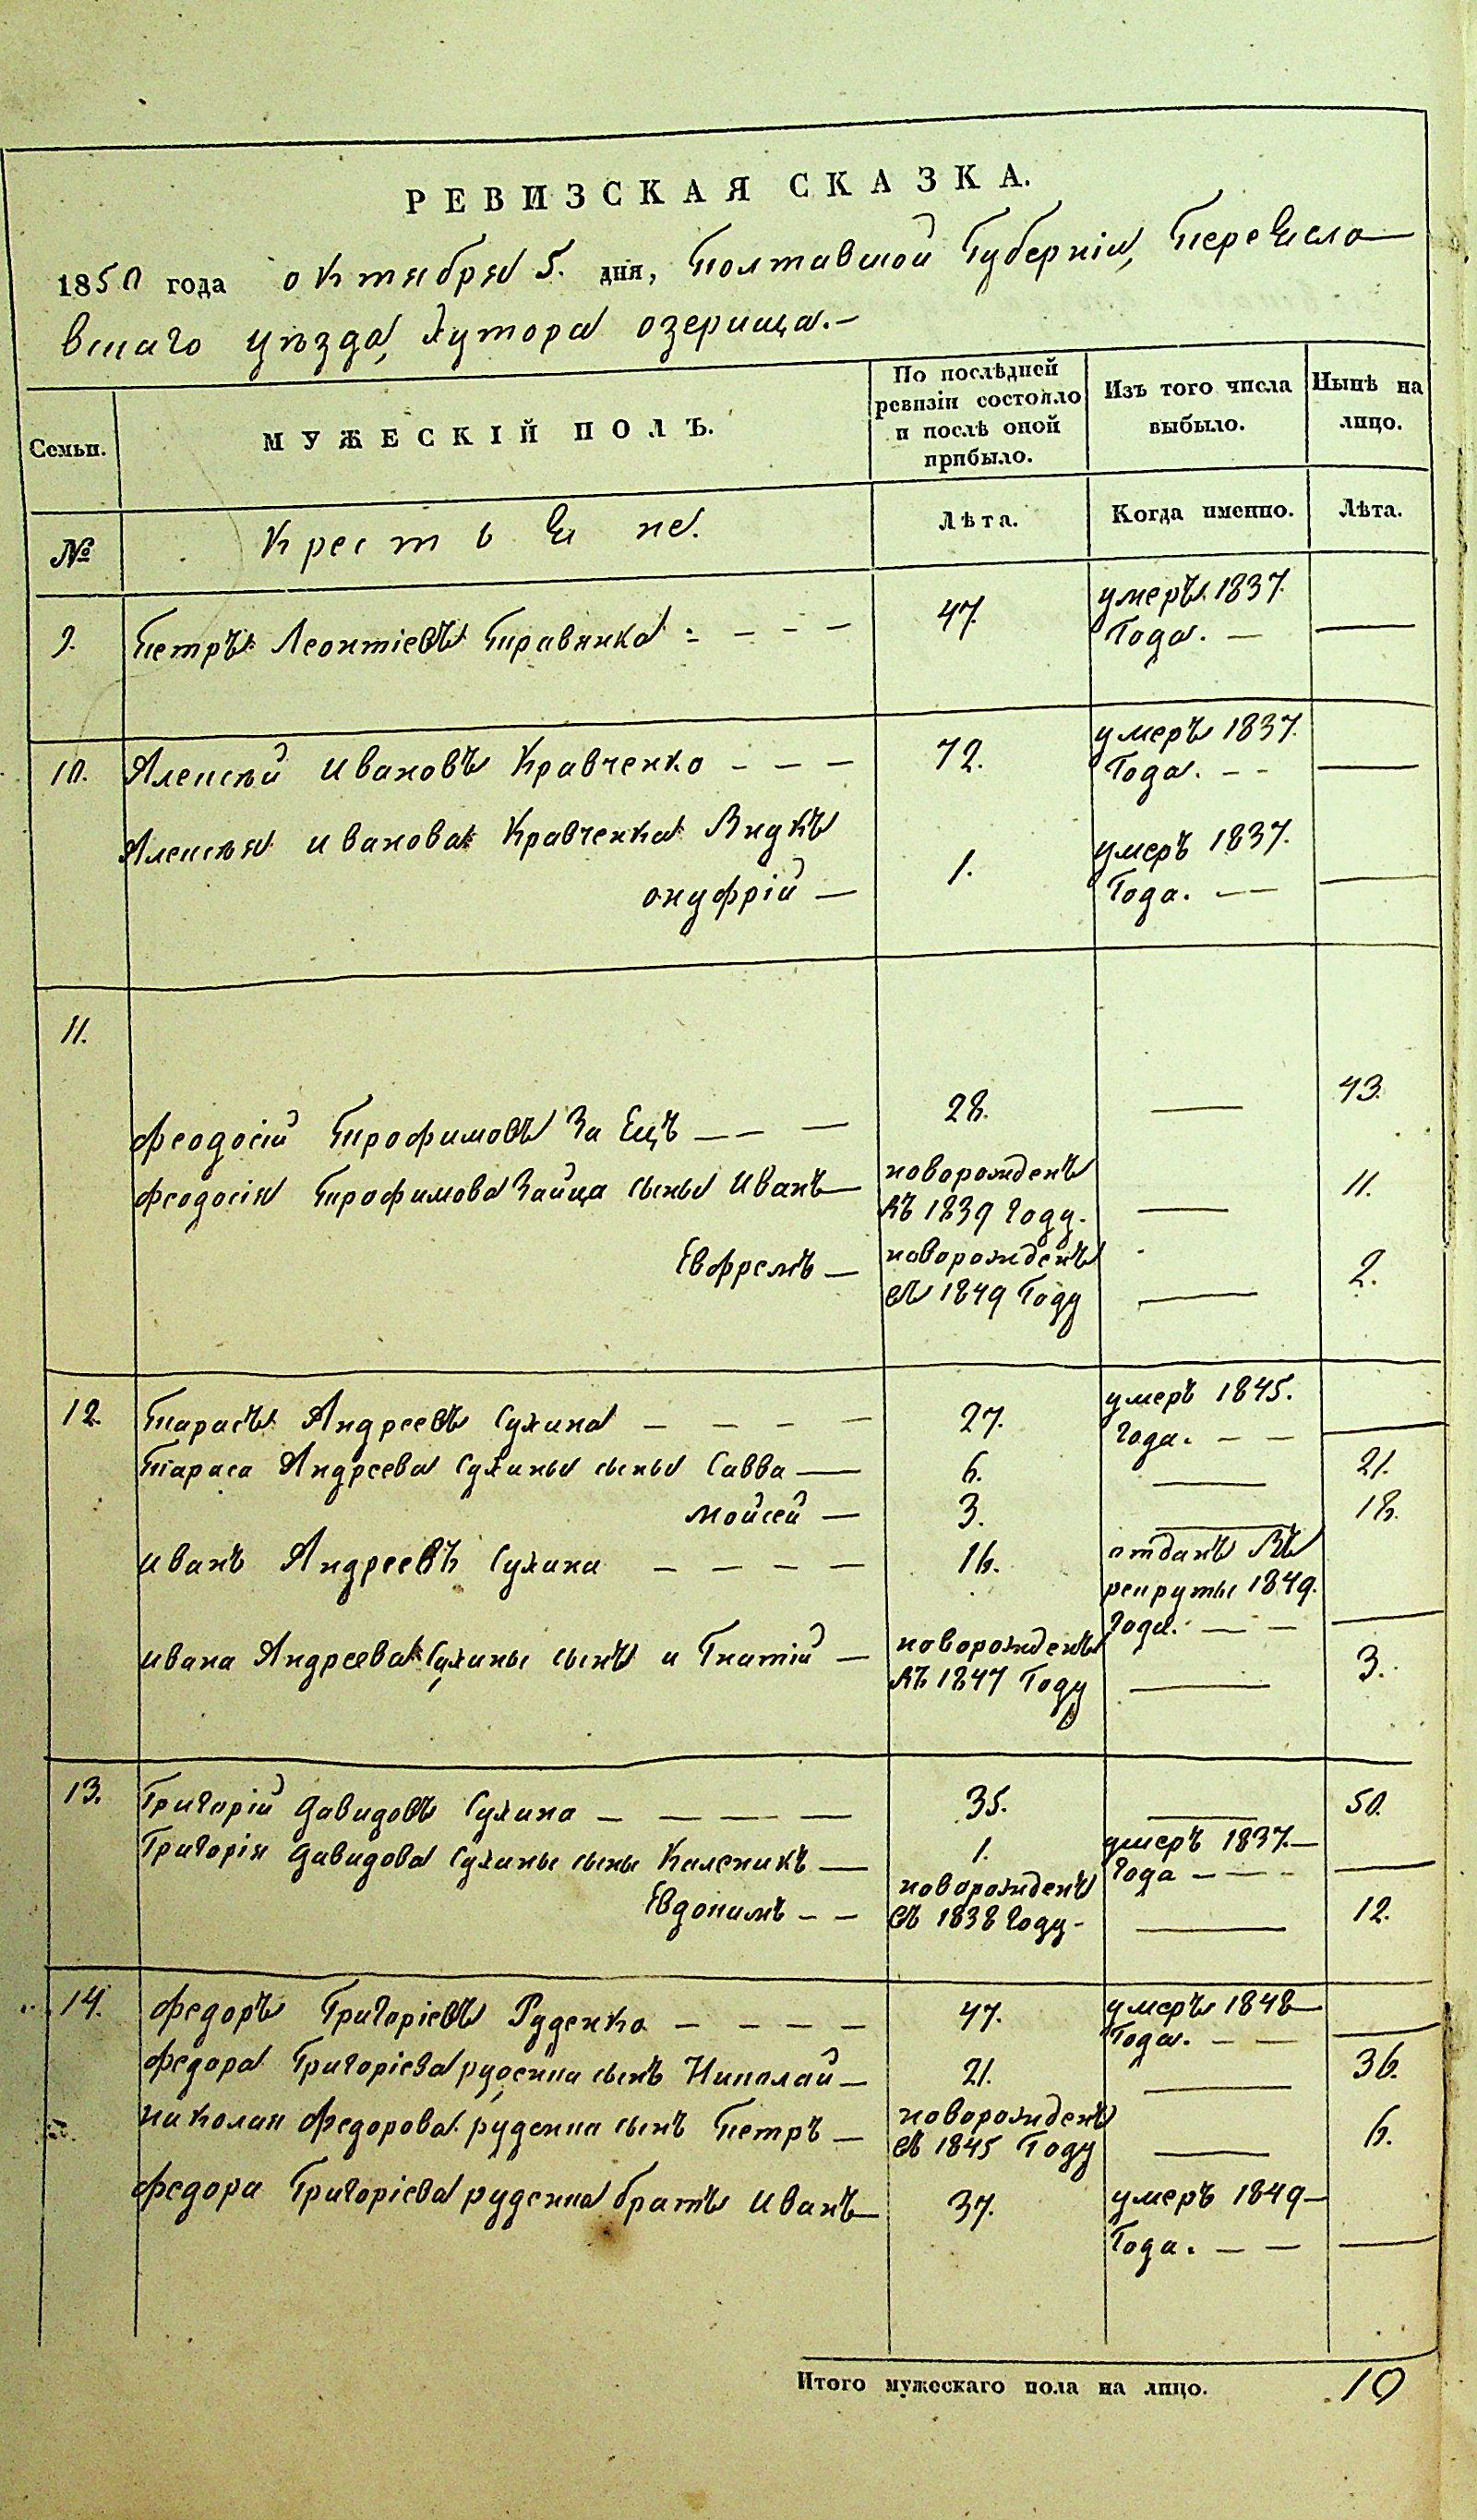 РЕВИЗСКАЯ СКАЗКА.
1850 года октября 5. дня, Полтавской Губерніи, Переясла
вскаго уезда, хутора озерища.-
Семьи.
МУЖЕСКІЙ ПОЛЪ.
По послѣдней
ревизіи состояло
и послѣ оной
прибыло.
Изъ того числа
выбыло.
Нынѣ на
лицо.
№
Крестьяне.
Лѣта.
Когда именно.
Лѣта.
9. Петръ Леонтіевъ Правянка 47. умеръ 1837.
Года. —
10. Алексѣй Ивановъ Кравченко 72. умеръ 1837.
Года. — —
Алексѣя Иванова Кравченка Внукъ
онуфрій — 1. умеръ 1837.
Года. — —
11.
Феодосій Трофимовъ Заецъ — — — 28. — 43.
Феодосія Трофимова Зайца сыны Иванъ — новорожденъ
въ 1839 году. — 11.
Евфремъ — новорожденъ
въ 1849 Году — 2.
12. Тарасъ Андреевъ Сухина — — — — 27. умеръ 1845.
Года. — —
Тараса Андреева Сухины сыны Савва — 6. — 21.
Мойсей — 3. — 18.
Иванъ Андреевъ Сухина — — — — 16. отданъ въ
рекруты 1849.
Года. — —
Ивана Андреева Сухины сынъ и Гнатій — новорожденъ
въ 1847 Году — 3.
13. Григорій Давидовъ Сухина — — — — 35. — 50.
Григорія Давидова Сухины сыны Каленикъ — 1. умеръ 1837.—
Года — — —
Евдокимъ — — новорожденъ
въ 1838 Году- — 12.
14. Федоръ Григоріевъ Руденко — — — — 47. умеръ 1848—
Года. — —
Федора Григоріева руденка сынъ Николай — 21. — 36.
Николая Федорова руденка сынъ Петръ — новорожденъ
въ 1845 Году — 6.
Федора Григоріева руденка братъ Иванъ — 37. умеръ 1849—
Года. — —
Итого мужескаго пола на лицо. 10